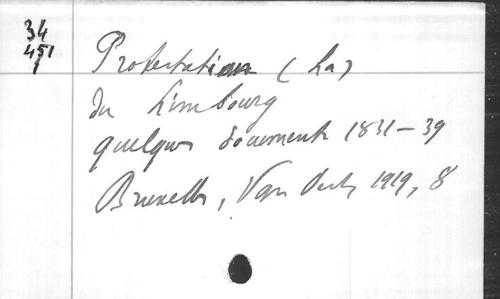 34
451
1
Protestation (La)
du Limbourg
quelques documents 1831-39
Bruxelles, Van Oest, 1919, 8°